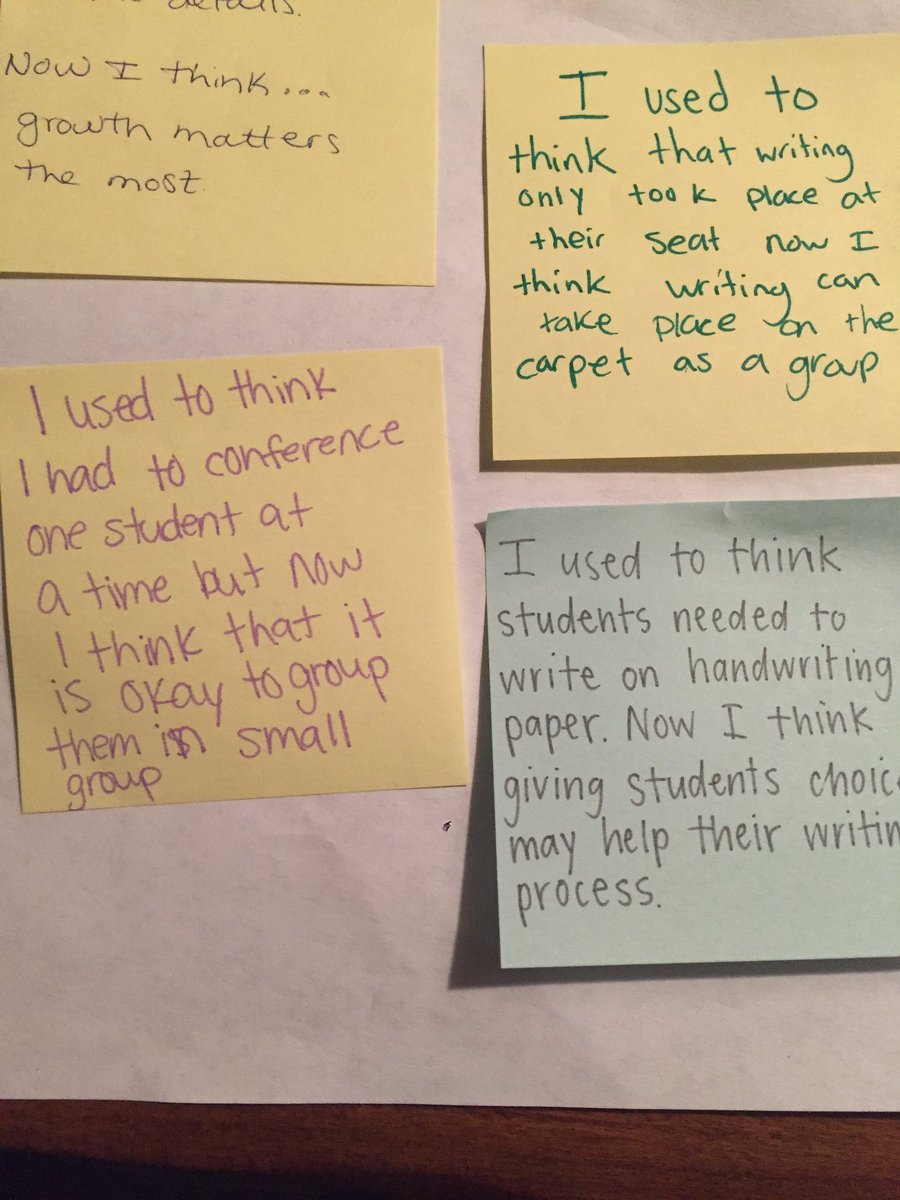 details.
Now I think...
growth matters
the most.
I used to
think that writing
only took place at
their seat now I
think writing can
take place on the
carpet as a group
I used to think
I had to conference
one student at
a time but now
I think that it
is okay to group
them in small
group
I used to think
students needed to
write on handwriting
paper. Now I think
giving students
may help their
process.